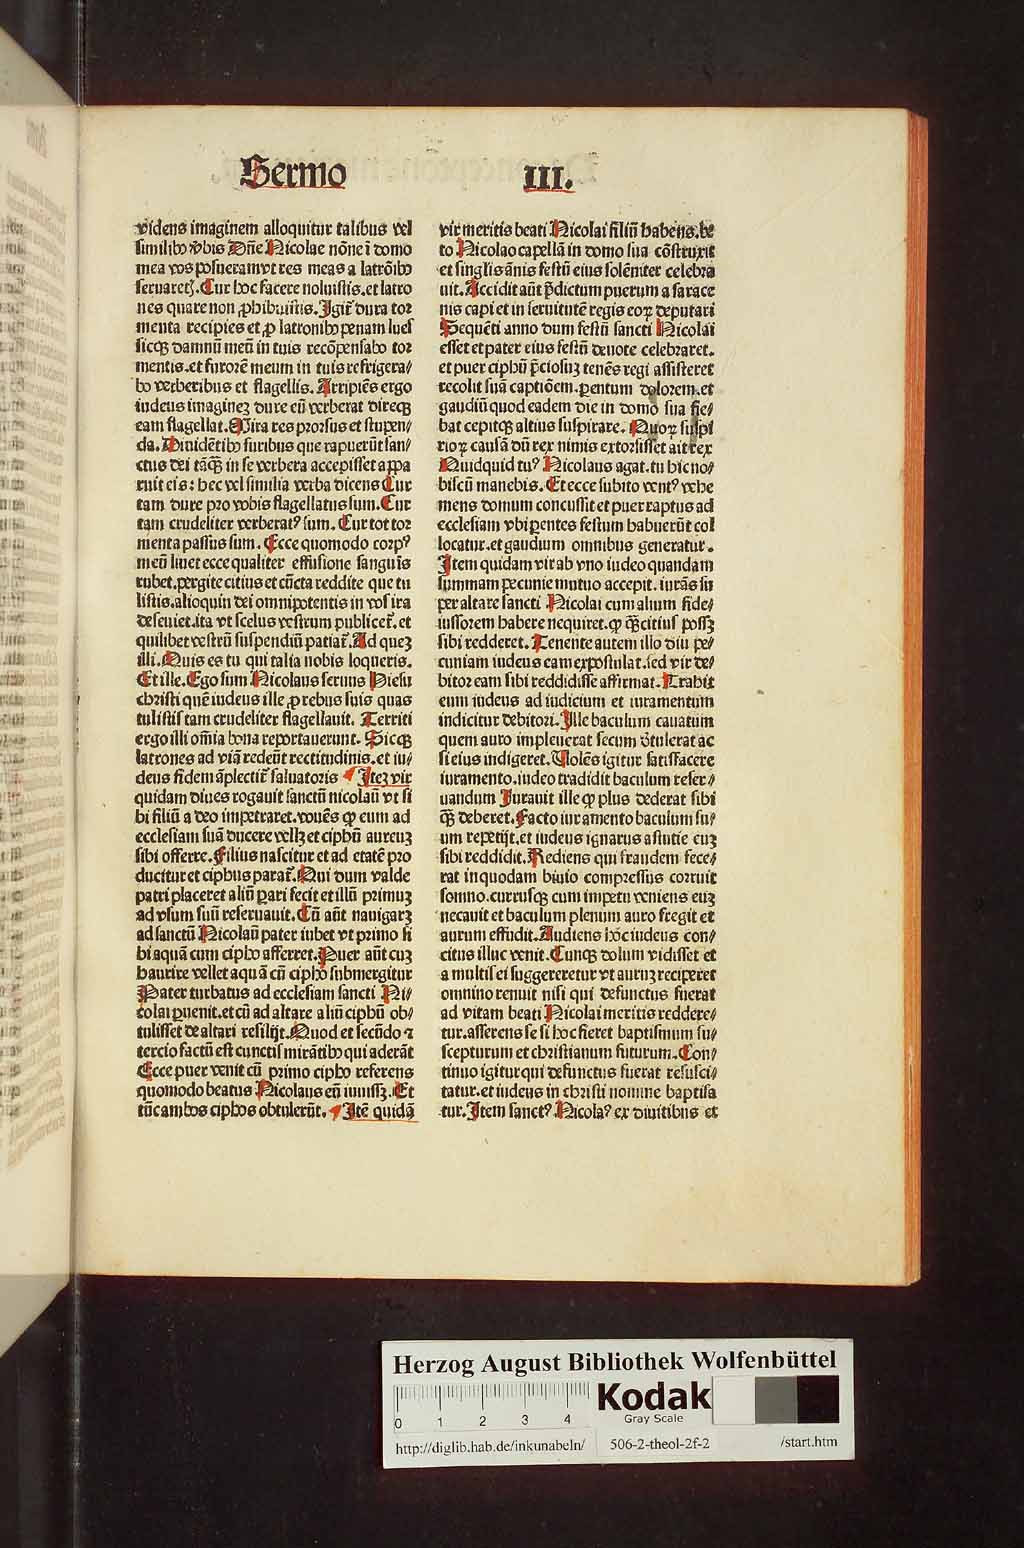 Sermo III.
videns imaginem alloquitur talibus vel
similibꝰ v̄bis Dn̄e Nicolae nōne ī domo
mea vos posueram vt res meas a latrōibꝰ
seruaretꝭ. Cur hoc facere noluistis. et latro
nes quare non ꝓhibuistis. Igit᷑ dura tor
menta recipies et ꝓ latronibꝰ penam lues
sicqꝫ damnū meū in tuis recōpensabo tor
mentis. et furorē meum in tuis refrigera/
bo verberibus et flagellis. Arripiēs ergo
iudeus imagineꝫ dure eū verberat direqꝫ
eam flagellat. Mira res prorsus et stupen/
da. Diuidētibꝰ furibus que rapuerūt san/
ctus dei tāqꝫ in se verbera accepisset appa
ruit eis: hec vel similia verba dicens Cur
tam dure pro vobis flagellatus sum. Cur
tam crudeliter verberatꝰ sum. Cur tot tor
menta passus sum. Ecce quomodo corpꝰ
meū liuet ecce qualiter effusione sanguīs
rubet. pergite citius et cūcta reddite que tu
listis. alioquin dei omnipotentis in vos ira
deseuiet. ita vt scelus vestrum publicet᷑. et
quilibet vestrū suspendiū patiat᷑. Ad queꝫ
illi. Quis es tu qui talia nobis loqueris.
Et ille. Ego sum Nicolaus seruus Hiesu
christi quē iudeus ille ꝓ rebus suis quas
tulistis tam crudeliter flagellauit. Territi
ergo illi om̄ia bona reportauerunt. Sicqꝫ
latrones ad viā redeūt rectitudinis. et iu/
deus fidem āplectit᷑ saluatoris Iteꝫ vir
quidam diues rogauit sanctū nicolaū vt si
bi filiū a deo impetraret. vouēs ꝙ eum ad
ecclesiam suā ducere vellꝫ et ciphū aureuꝫ
sibi offerre. Filius nascitur et ad etatē pro
ducitur et ciphus parat᷑. Qui dum valde
patri placeret aliū pari fecit et illū primuꝫ
ad vsum suū reseruauit. Cū aūt nauigarꝫ
ad sanctū Nicolaū pater iubet vt primo si
bi aquā cum ciphꝰ afferret. Puer aūt cuꝫ
haurire vellet aquā cū ciphꝰ submergitur
Pater turbatus ad ecclesiam sancti Ni/
colai ꝑuenit. et cū ad altare aliū ciphū ob/
tulisset de altari resilijt. Quod et secūdo ⁊
tercio factū est cunctis mirātibꝰ qui aderāt
Ecce puer venit cū primo ciphꝰ referens
quomodo beatus Nicolaus eū iuuissꝫ. Et
tūc ambos ciphos obtulerūt. Itē quidā
vir meritis beati Nicolai filiū habens. be
to Nicolao capellā in domo sua cōstruxit
et singlis ānis festū eius solēniter celebra
uit. Accidit aūt p̄dictum puerum a sarace
nis capi et in seruitutē regis eoꝝ deputari
Sequēti anno dum festū sancti Nicolai
esset et pater eius festū deuote celebraret.
et puer ciphū p̄ciosuꝫ tenēs regi assisteret
recolit suā captiōem. parentum dolorem. et
gaudiū quod eadem die in domo sua fie/
bat cepitqꝫ altius suspirare. Quoꝝ suspi
rioꝝ causā dū rex nimis extorsisset ait rex
Quidquid tuꝰ Nicolaus agat. tu hic no/
biscū manebis. Et ecce subito ventꝰ vehe
mens domum concussit et puer raptus ad
ecclesiam vbi pentes festum habuerūt col
locatur. et gaudium omnibus generatur.
Item quidam vir ab vno iudeo quandam
summam pecunie mutuo accepit. iurās su
per altare sancti Nicolai cum alium fide/
iussorem habere nequiret. ꝙ qꝫcitius possꝫ
sibi redderet. Tenente autem illo diu pe/
cuniam iudeus eam expostulat. sed vir de/
bitor eam sibi reddidisse affirmat. Trahit
eum iudeus ad iudicium et iuramentum
indicitur debitori. Ille baculum cauatum
quem auro impleuerat secum ōtulerat ac
si eius indigeret. Volēs igitur satisfacere
iuramento. iudeo tradidit baculum reser/
uandum Iurauit ille ꝙ plus dederat sibi
qꝫ deberet. Facto iuramento baculum su/
um repetijt. et iudeus ignarus astutie euꝫ
sibi reddidit. Rediens qui fraudem fece/
rat in quodam biuio compressus corruit
somno. currusqꝫ cum impetu veniens euꝫ
necauit et baculum plenum auro fregit et
aurum effudit. Audiens hoc iudeus con/
citus illuc venit. Cumqꝫ dolum vidisset et
a multis ei suggereretur vt auruꝫ reciperet
omnino renuit nisi qui defunctus fuerat
ad vitam beati Nicolai meritis reddere/
tur. asserens se si hoc fieret baptismum su/
scepturum et christianum futurum. Con/
tinuo igitur qui defunctus fuerat resusci/
tatur. et iudeus in christi nomine baptisa
tur. Item sanctꝰ Nicolaꝰ ex diuitibus et
Herzog August Bibliothek Wolfenbüttel
0 1 2 3 4
Kodak
Gray Scale
http://diglib.hab.de/inkunabeln/ 506-2-theol-2f-2 /start.htm